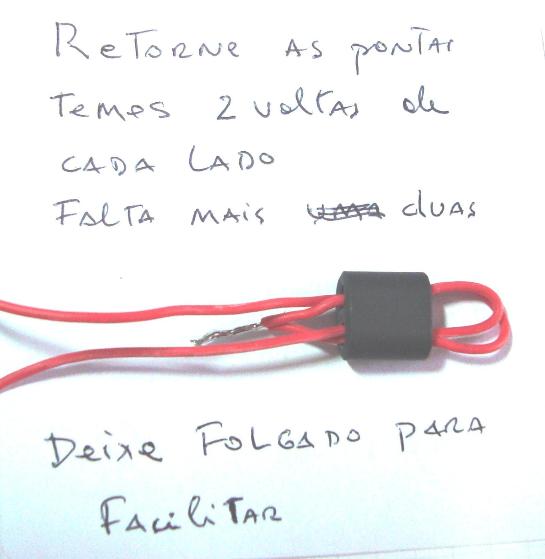 Retorne as pontas
temos 2 voltas de
cada lado
Falta mais uma duas
Deixe folgado para
facilitar